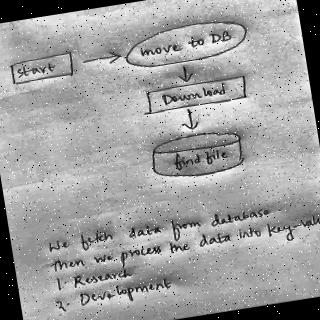 start
move to DB
Download
find file
We fetch data from database
Then we process the data into key-
1. Research
2. Development